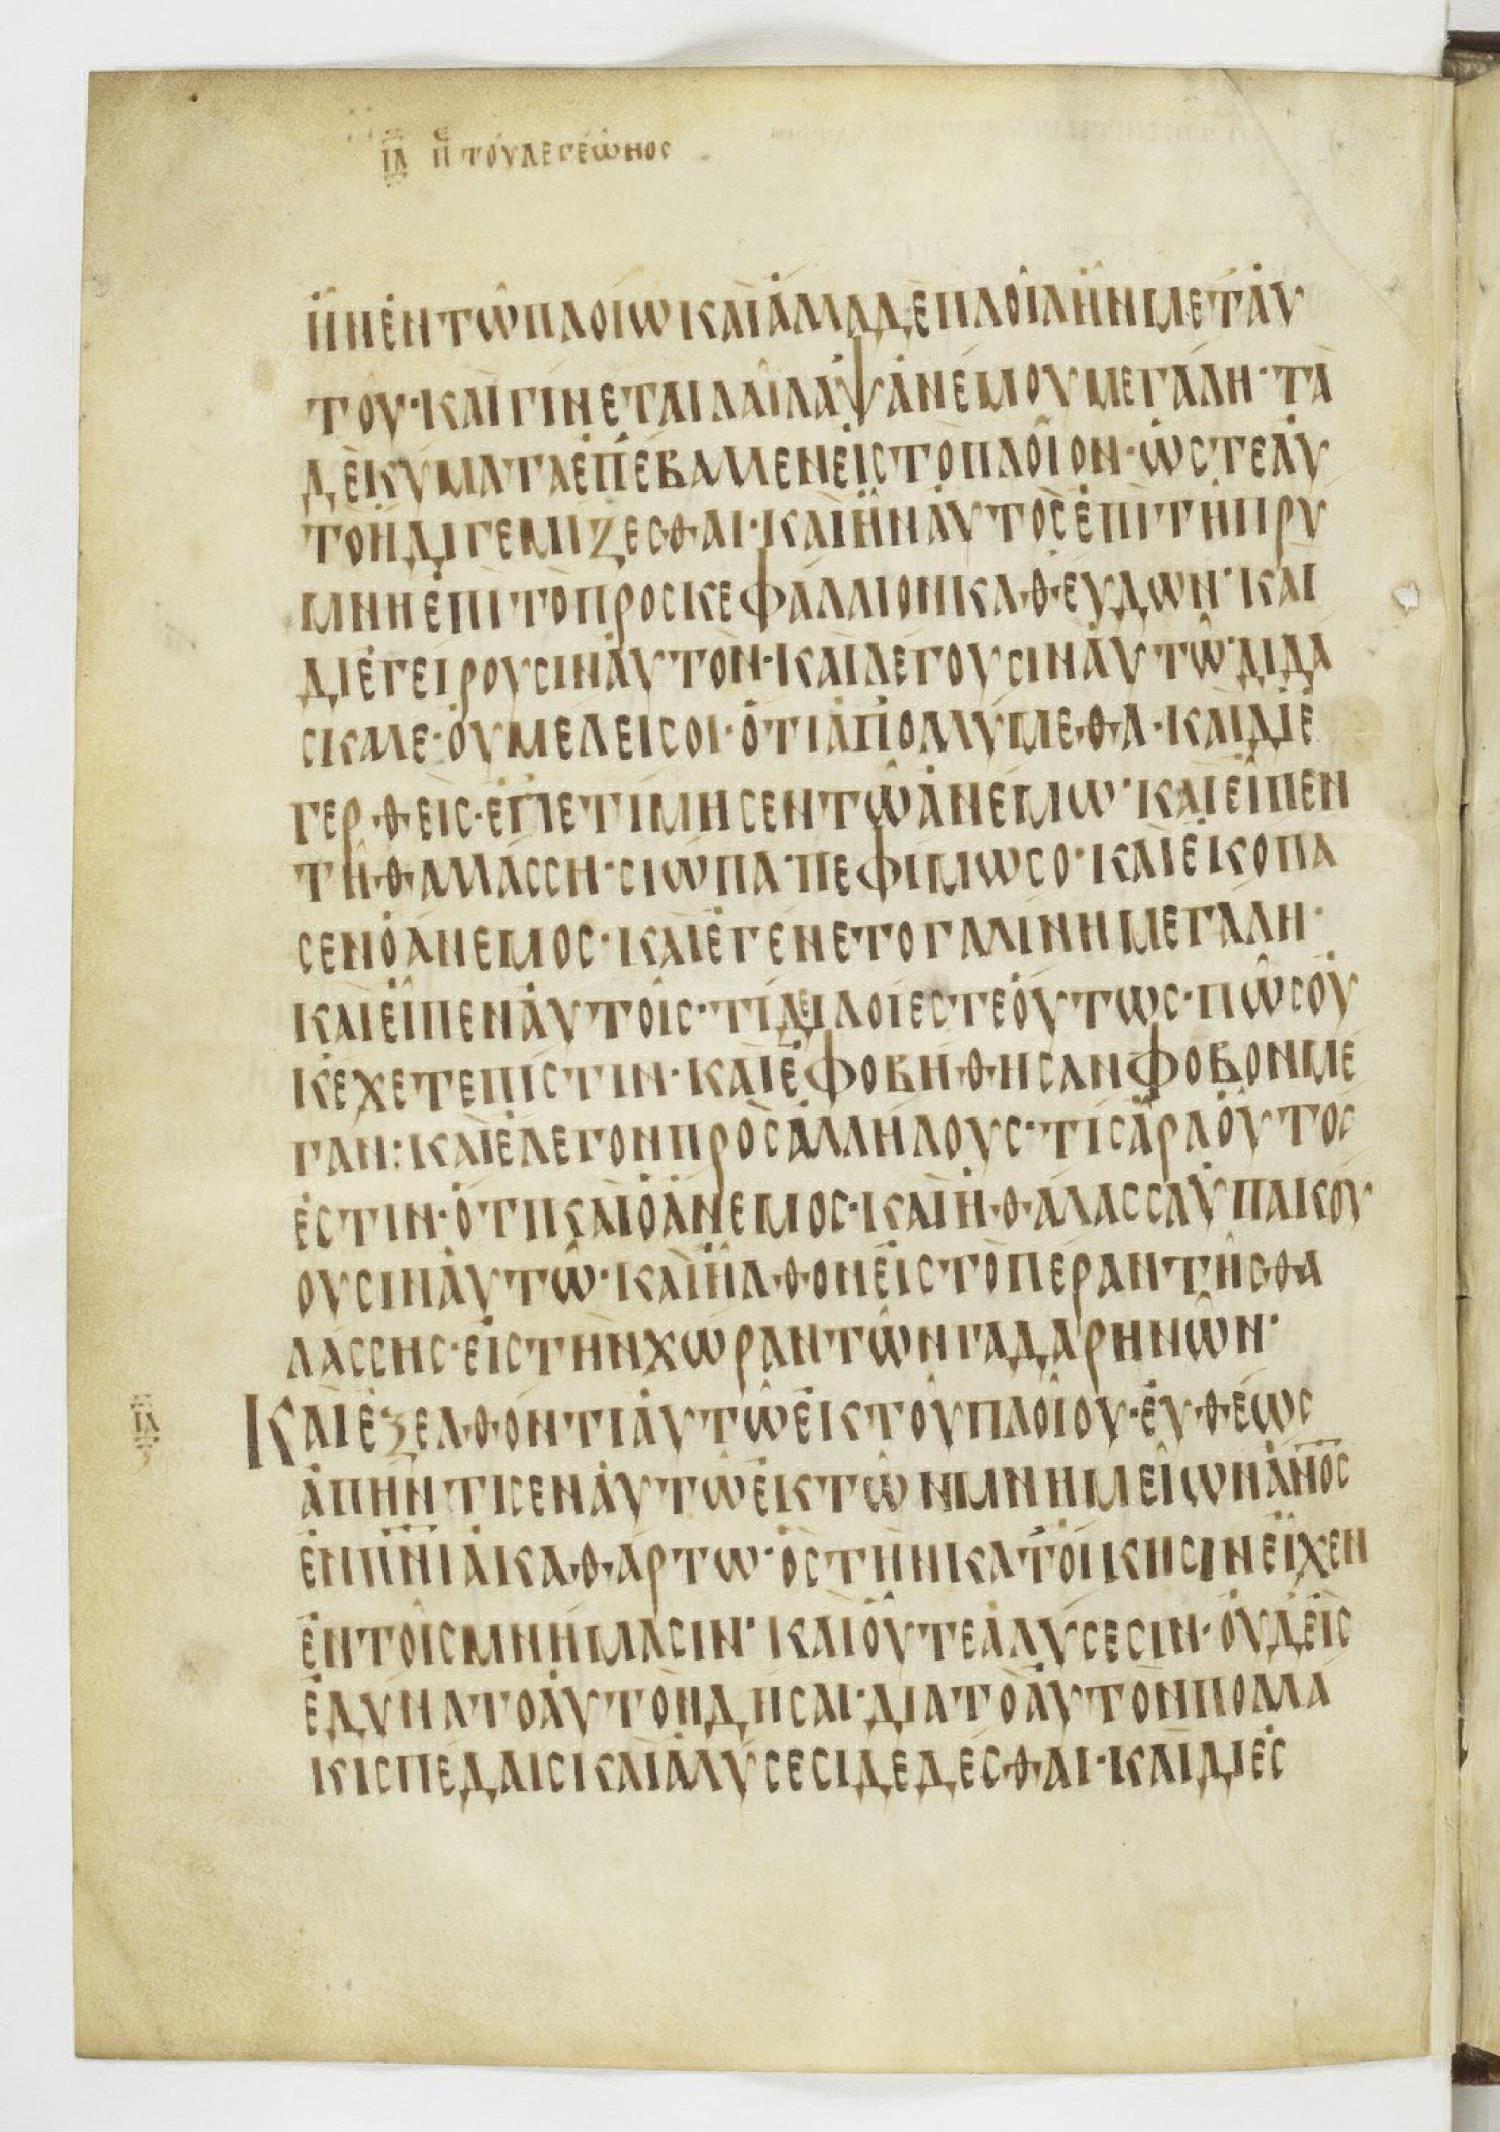 ΙΑ ΠΕ ΤΟΥ ΛΕΓΕΩΝΟС
ΗΝΕΝΤΩΠΛΟΙΩΚΑΙΑΛΛΑΔΕΠΛΟΙΑΗΝΜΕΤΑΥ
ΤΟΥ·ΚΑΙΓΙΝΕΤΑΙΛΑΙΛΑΨΑΝΕΜΟΥΜΕΓΑΛΗ·ΤΑ
ΔΕΚΥΜΑΤΑΕΠΕΒΑΛΛΕΝΕΙСΤΟΠΛΟΙΟΝ·ΩСΤΕΑΥ
ΤΟΗΔΙΓΕΜΙΖΕСΘΑΙ·ΚΑΙΗΝΑΥΤΟСΕΠΙΤΗΠΡΥ
ΜΝΗΕΠΙΤΟΠΡΟСΚΕΦΑΛΑΙΟΝΚΑΘΕΥΔΩΝ·ΚΑΙ
ΔΙΕΓΕΙΡΟΥСΙΝΑΥΤΟΝ·ΚΑΙΛΕΓΟΥСΙΝΑΥΤΩ·ΔΙΔΑ
СΚΑΛΕ·ΟΥΜΕΛΕΙСΟΙ·ΟΤΙΑΠΟΛΛΥΜΕΘΑ·ΚΑΙΔΙΕ
ΓΕΡΘΕΙС·ΕΠΕΤΙΜΗСΕΝΤΩΑΝΕΜΩ·ΚΑΙΕΙΠΕΝ
ΤΗΘΑΛΑССΗ·СΙΩΠΑ·ΠΕΦΙΜΩСΟ·ΚΑΙΕΚΟΠΑ
СΕΝΟΑΝΕΜΟС·ΚΑΙΕΓΕΝΕΤΟΓΑΛΙΝΗΜΕΓΑΛΗ·
ΚΑΙΕΙΠΕΝΑΥΤΟΙС·ΤΙΔΕΙΛΟΙΕСΤΕΟΥΤΩС·ΠΩСΟΥ
ΚΕΧΕΤΕΠΙСΤΙΝ·ΚΑΙΕΦΟΒΗΘΗСΑΝΦΟΒΟΝΜΕ
ΓΑΝ:ΚΑΙΕΛΕΓΟΝΠΡΟСΑΛΛΗΛΟΥС·ΤΙСΑΡΑΟΥΤΟС
ΕСΤΙΝ·ΟΤΙΚΑΙΟΑΝΕΜΟС·ΚΑΙΗΘΑΛΑССΑΥΠΑΚΟΥ
ΟΥСΙΝΑΥΤΩ·ΚΑΙΗΛΘΟΝΕΙСΤΟΠΕΡΑΝΤΗСΘΑ
ΛΑССΗС·ΕΙСΤΗΝΧΩΡΑΝΤΩΝΓΑΔΑΡΗΝΩΝ·
ΙΑ ΚΑΙΕΞΕΛΘΟΝΤΙΑΥΤΩΕΚΤΟΥΠΛΟΙΟΥ·ΕΥΘΕΩС
ΑΠΗΝΤΙСΕΝΑΥΤΩΕΚΤΩΝΜΝΗΜΕΙΩΝΑΝΟС
ΕΝΠΝΙΑΚΑΘΑΡΤΩ·ΟСΤΗΝΚΑΤΟΙΚΗСΙΝΕΙΧΕΝ
ΕΝΤΟΙСΜΝΗΜΑСΙΝ·ΚΑΙΟΥΤΕΑΛΥСΕСΙΝ·ΟΥΔΕΙС
ΕΔΥΝΑΤΟΑΥΤΟΝΔΗСΑΙ·ΔΙΑΤΟΑΥΤΟΝΠΟΛΛΑ
ΚΙСΠΕΔΑΙСΚΑΙΑΛΥСΕСΙΔΕΔΕСΘΑΙ·ΚΑΙΔΙΕС